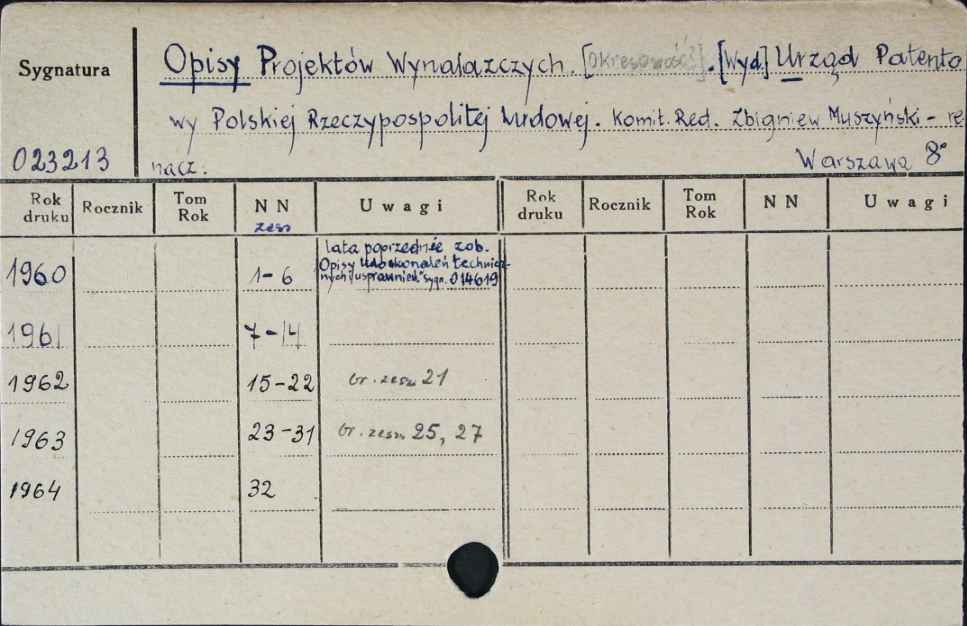 Sygnatura
Opisy Projektów Wynalazczych. [Okresowość?]. [Wyd.] Urząd Patento
wy Polskiej Rzeczypospolitej Ludowej. Komit. Red. Zbigniew Muszyński - re
nacz. Warszawa 8°
023213
Rok druku Rocznik Tom Rok NN Uwagi Rok druku Rocznik Tom Rok NN Uwagi
zesz
lata poprzednie zob.
Opisy Udoskonaleń technicz-
nych i usprawnień." sygn. 014619
1960 1-6
1961 7-14
1962 15-22 br. zesz 21
1963 23-31 br. zesz 25, 27
1964 32